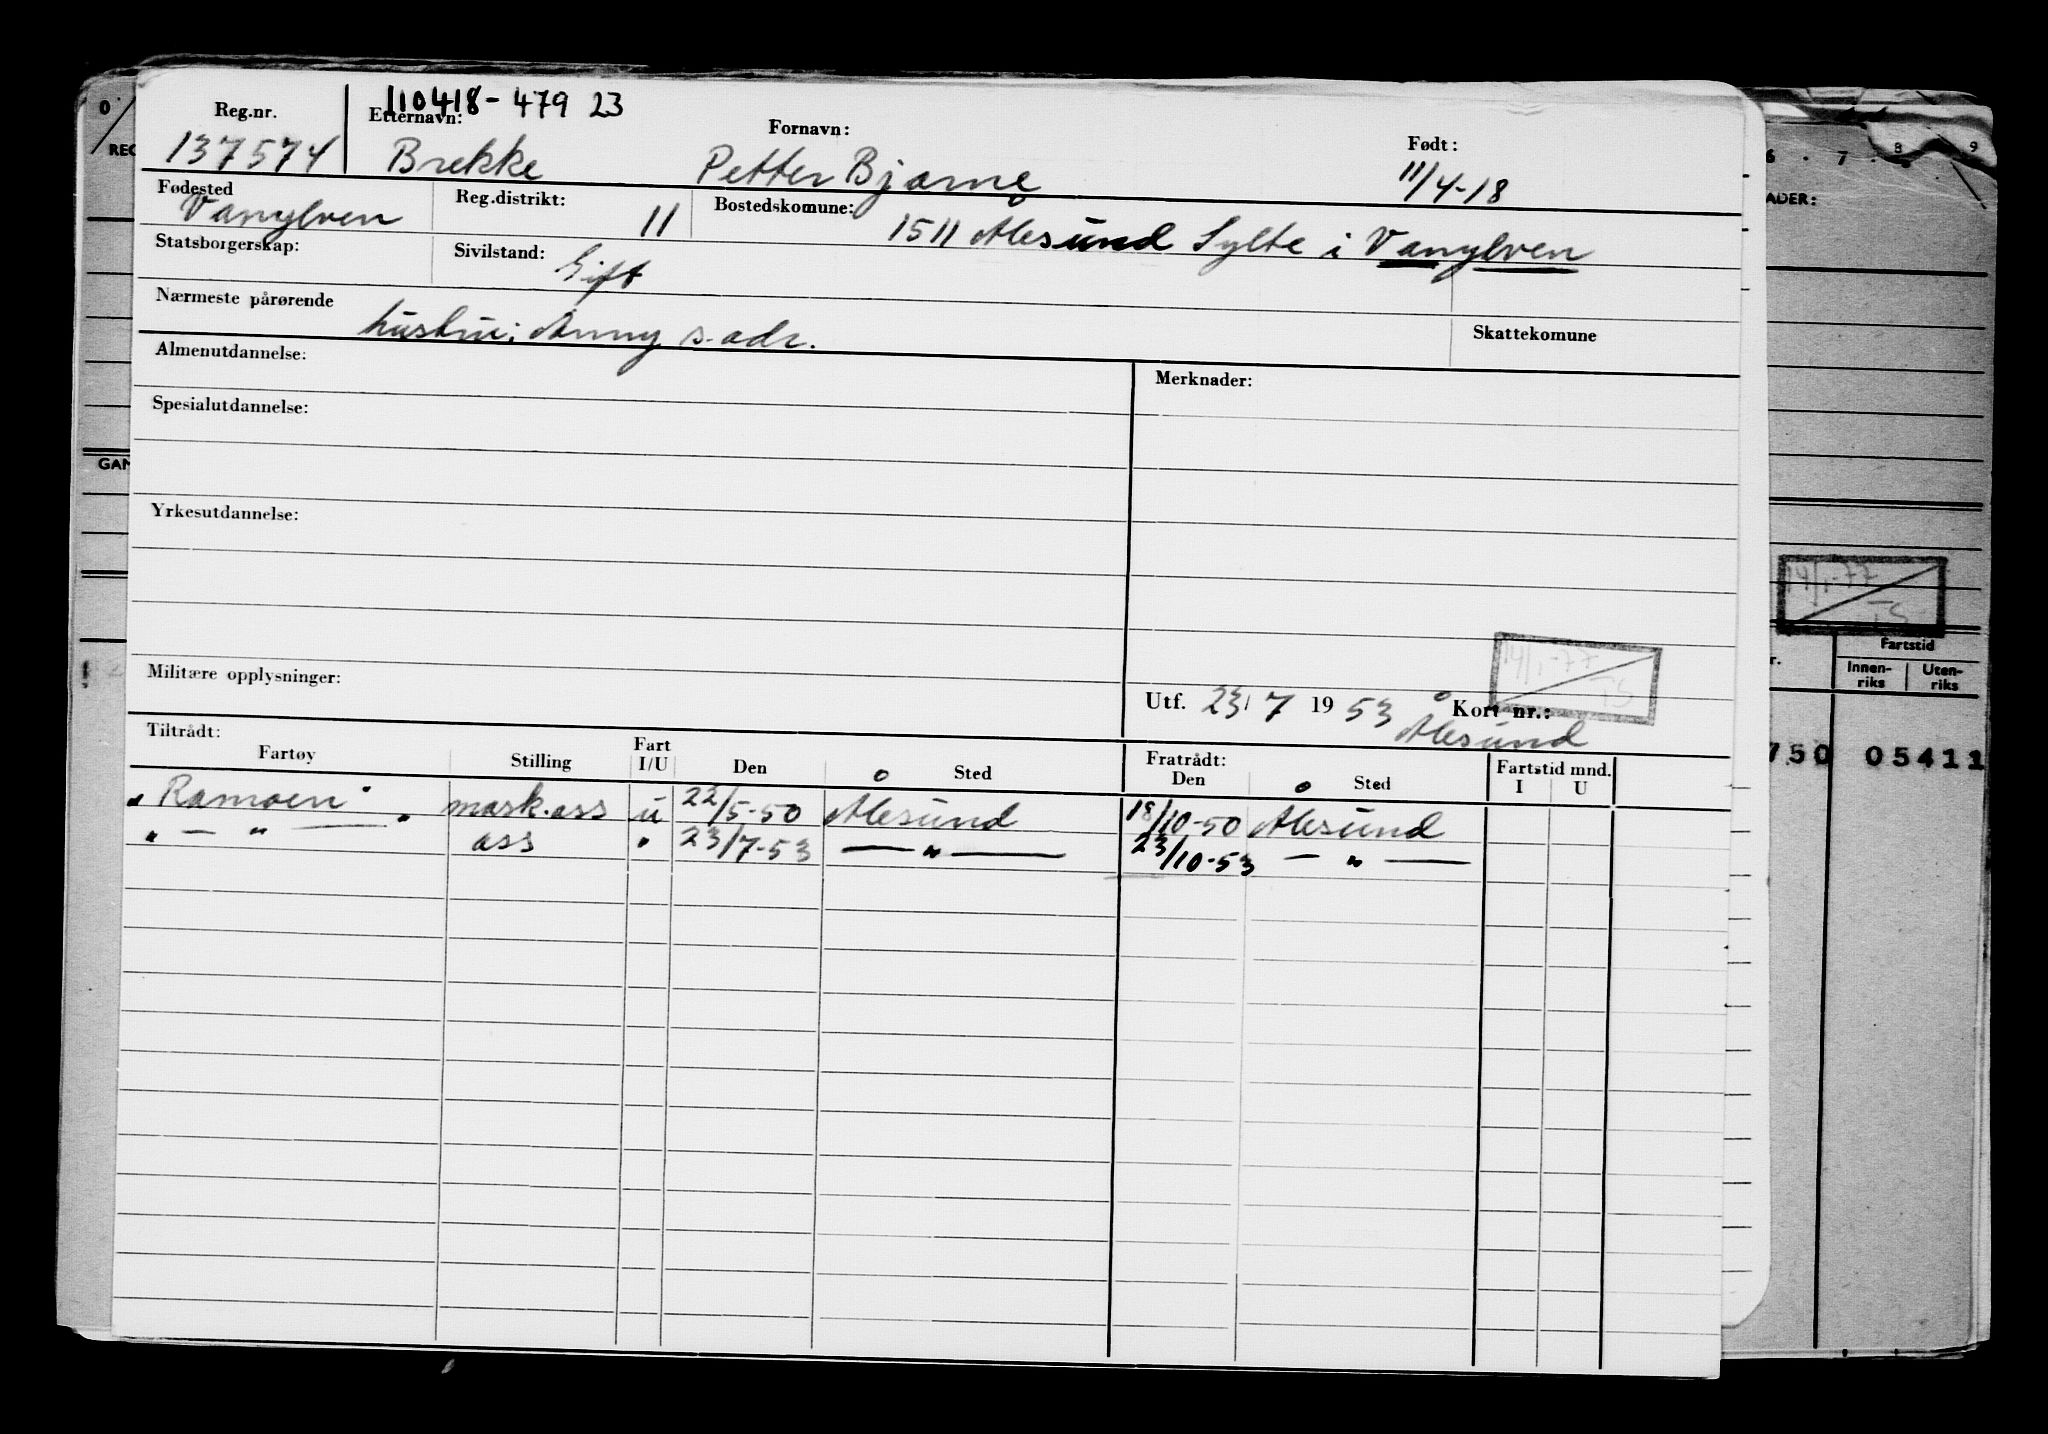 110418-479 23
Reg.nr. Etternavn: Fornavn: Født:
137574 Brekke Petter Bjarne 11/4-18
Fødested Reg.distrikt: Bostedskomune:
Vanylven 11 1511 Ålesund Sylte i Vanylven
Statsborgerskap: Sivilstand: Gift
Nærmeste pårørende Skattekomune
hustru: Anny s. adr.
Almenutdannelse: Merknader:
Spesialutdannelse:
Yrkesutdannelse:
Militære opplysninger:
14/1-77 TS
Utf. 23/7 1953 Kort nr.:
Ålesund
Tiltrådt: Fratrådt:
Fartøy Stilling Fart I/U Den Sted Den Sted Fartstid mnd. I U
"Ramoen" mask.ass u 22/5-50 Ålesund 18/10-50 Ålesund
" — " — " ass " 23/7-53 — " — 23/10-53 — " —
0/
REG
GAM
6 . 7 . 8 9
ADER:
14/1-77 TS
Fartstid
r. Innen-riks Uten-riks
750 05411